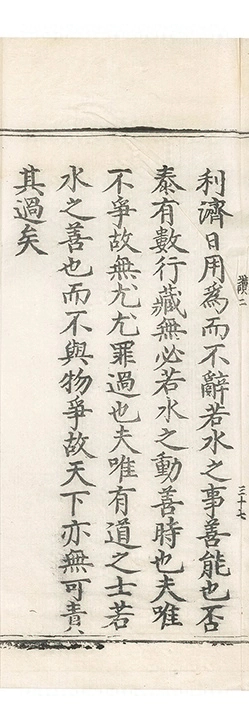 讚二
三十七
利濟日用爲而不辭若水之事善能也否
泰有數行藏無必若水之動善時也夫唯
不爭故無尤尤罪過也夫唯有道之士若
水之善也而不與物爭故天下亦無可責
其過矣